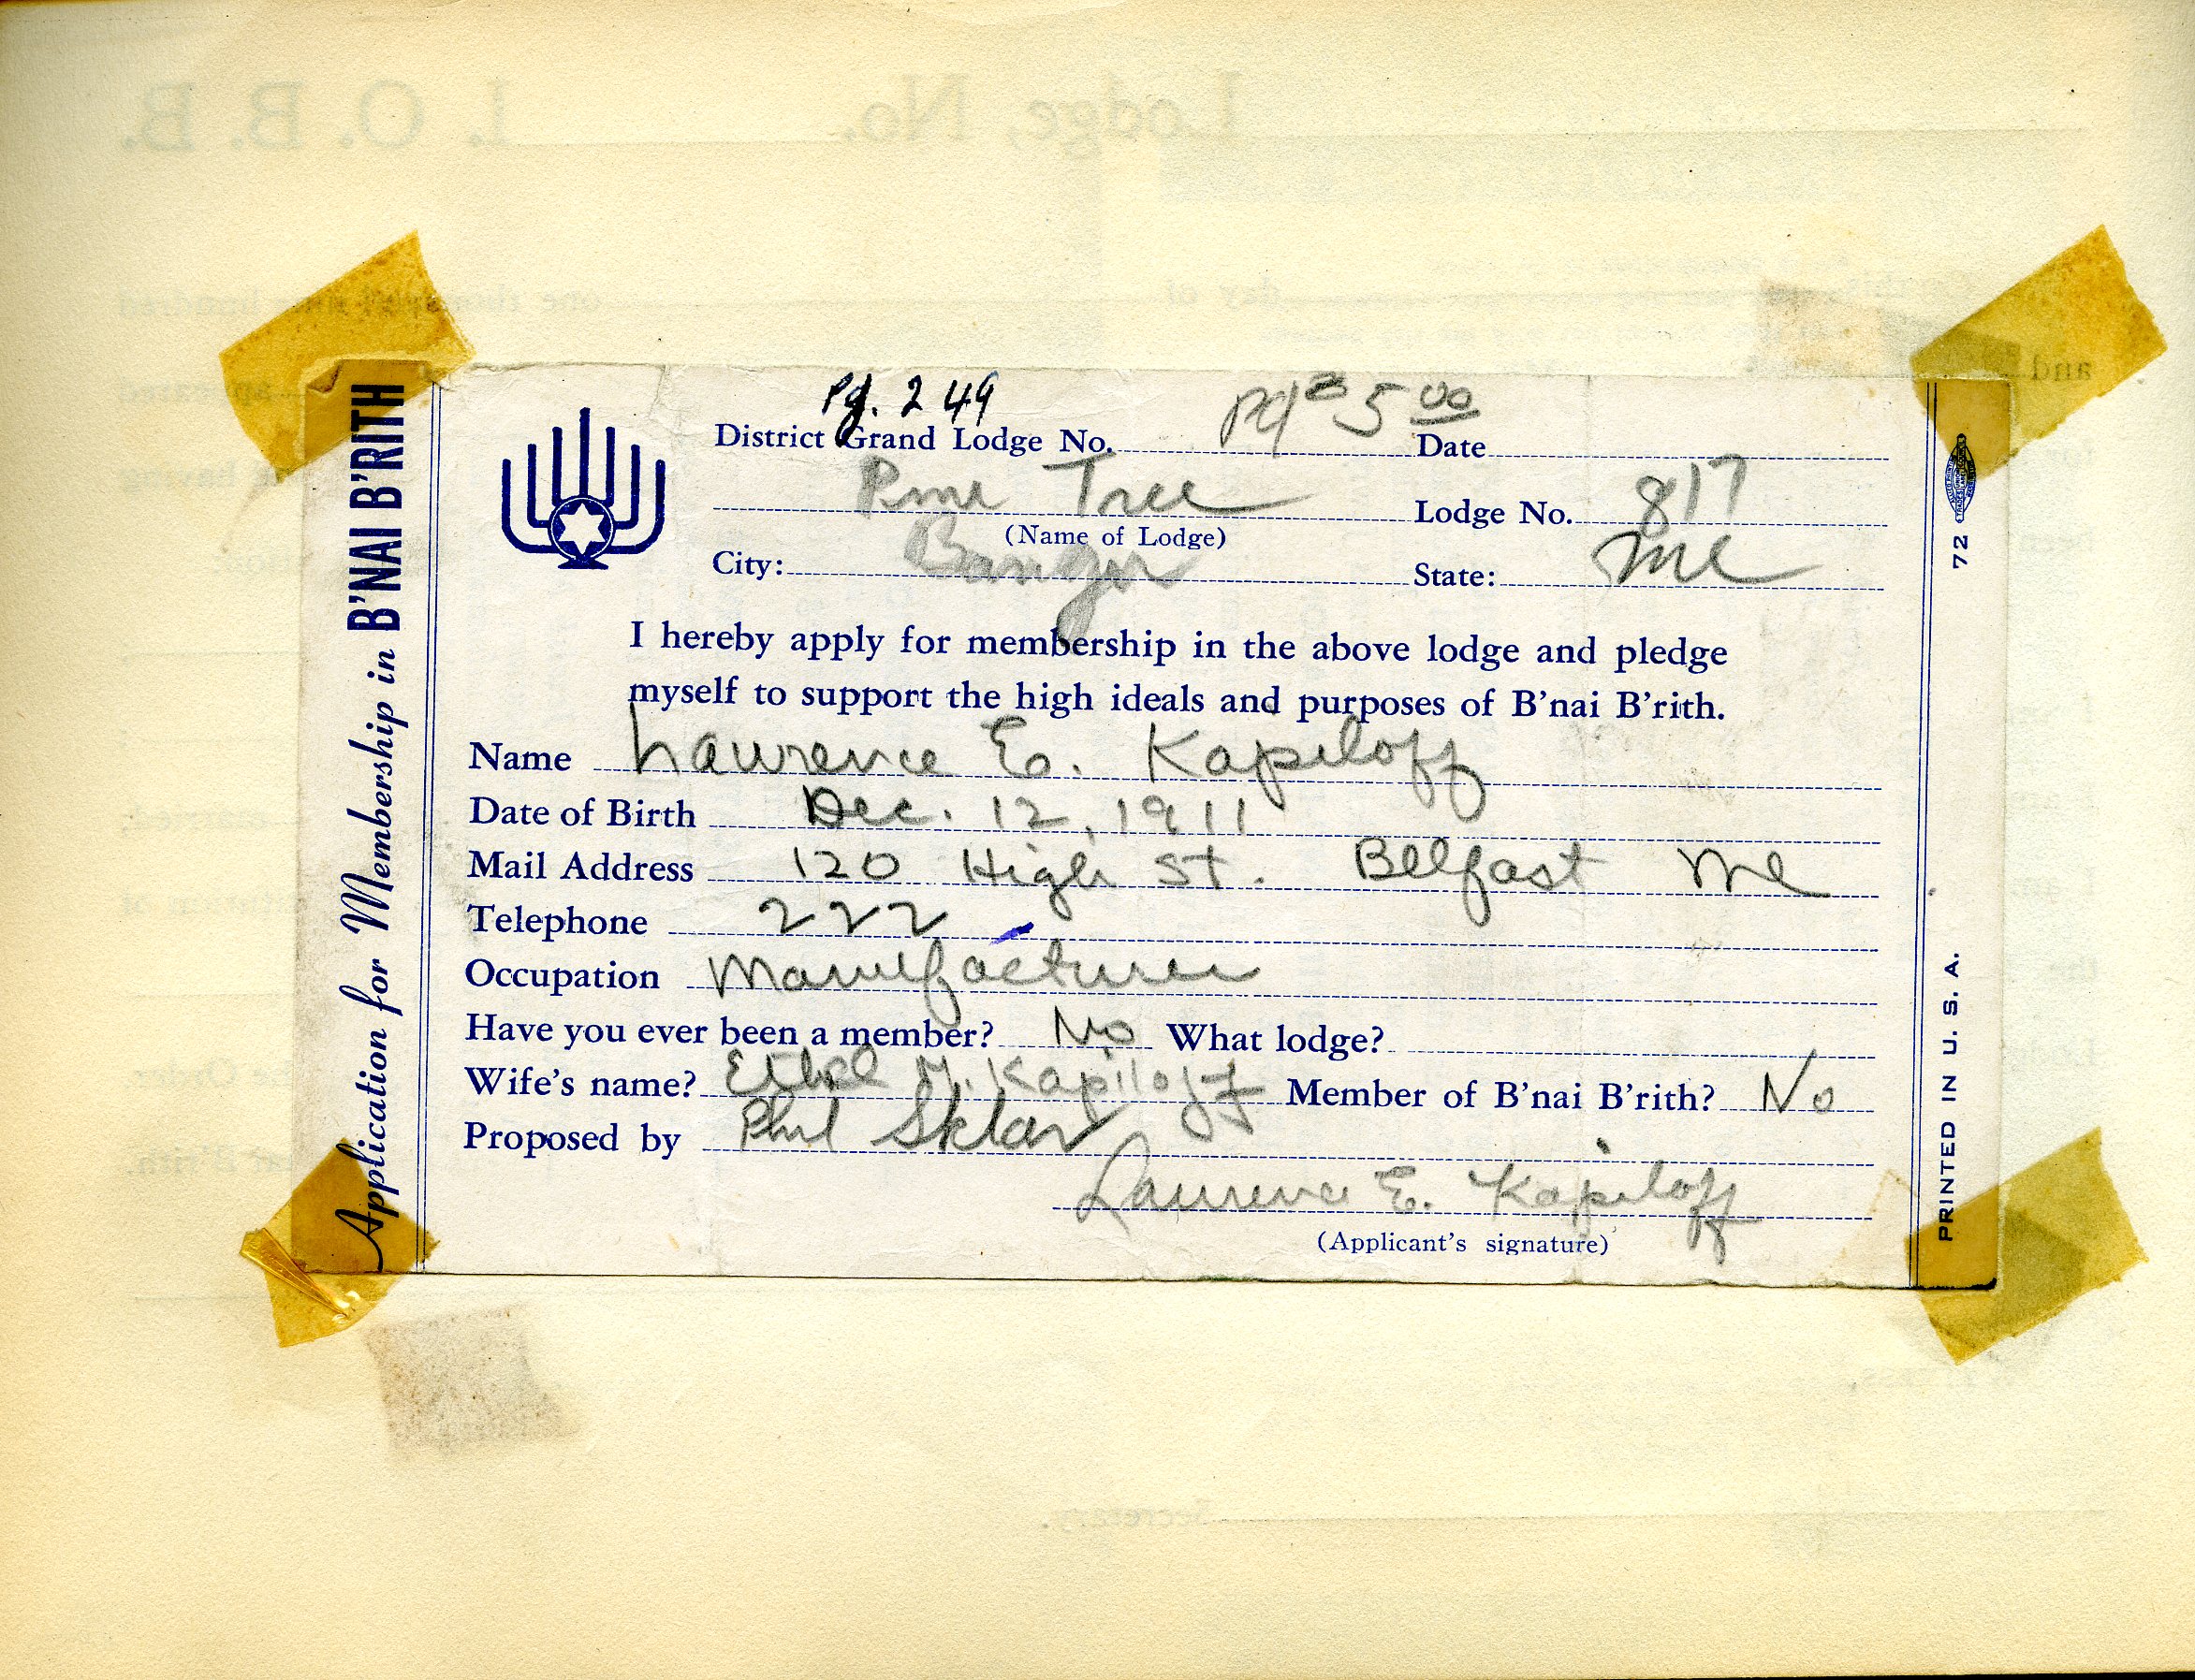 Lodge, No. I. O. B. B.
Application for Membership in B'NAI B'RITH
Pg. 249
pd 5 00
District Grand Lodge No. Date
Pine Tree Lodge No. 817
(Name of Lodge)
City: Bangor State: Me
I hereby apply for membership in the above lodge and pledge
myself to support the high ideals and purposes of B'nai B'rith.
Name Lawrence E. Kapiloff
Date of Birth Dec. 12, 1911
Mail Address 120 High St. Belfast Me
Telephone 222
Occupation Manufacturer
Have you ever been a member? No What lodge?
Wife's name? Ethel M. Kapiloff Member of B'nai B'rith? No
Proposed by Phil Sklar
Lawrence E. Kapiloff
(Applicant's signature)
72
PRINTED IN U. S. A.
Secretary.